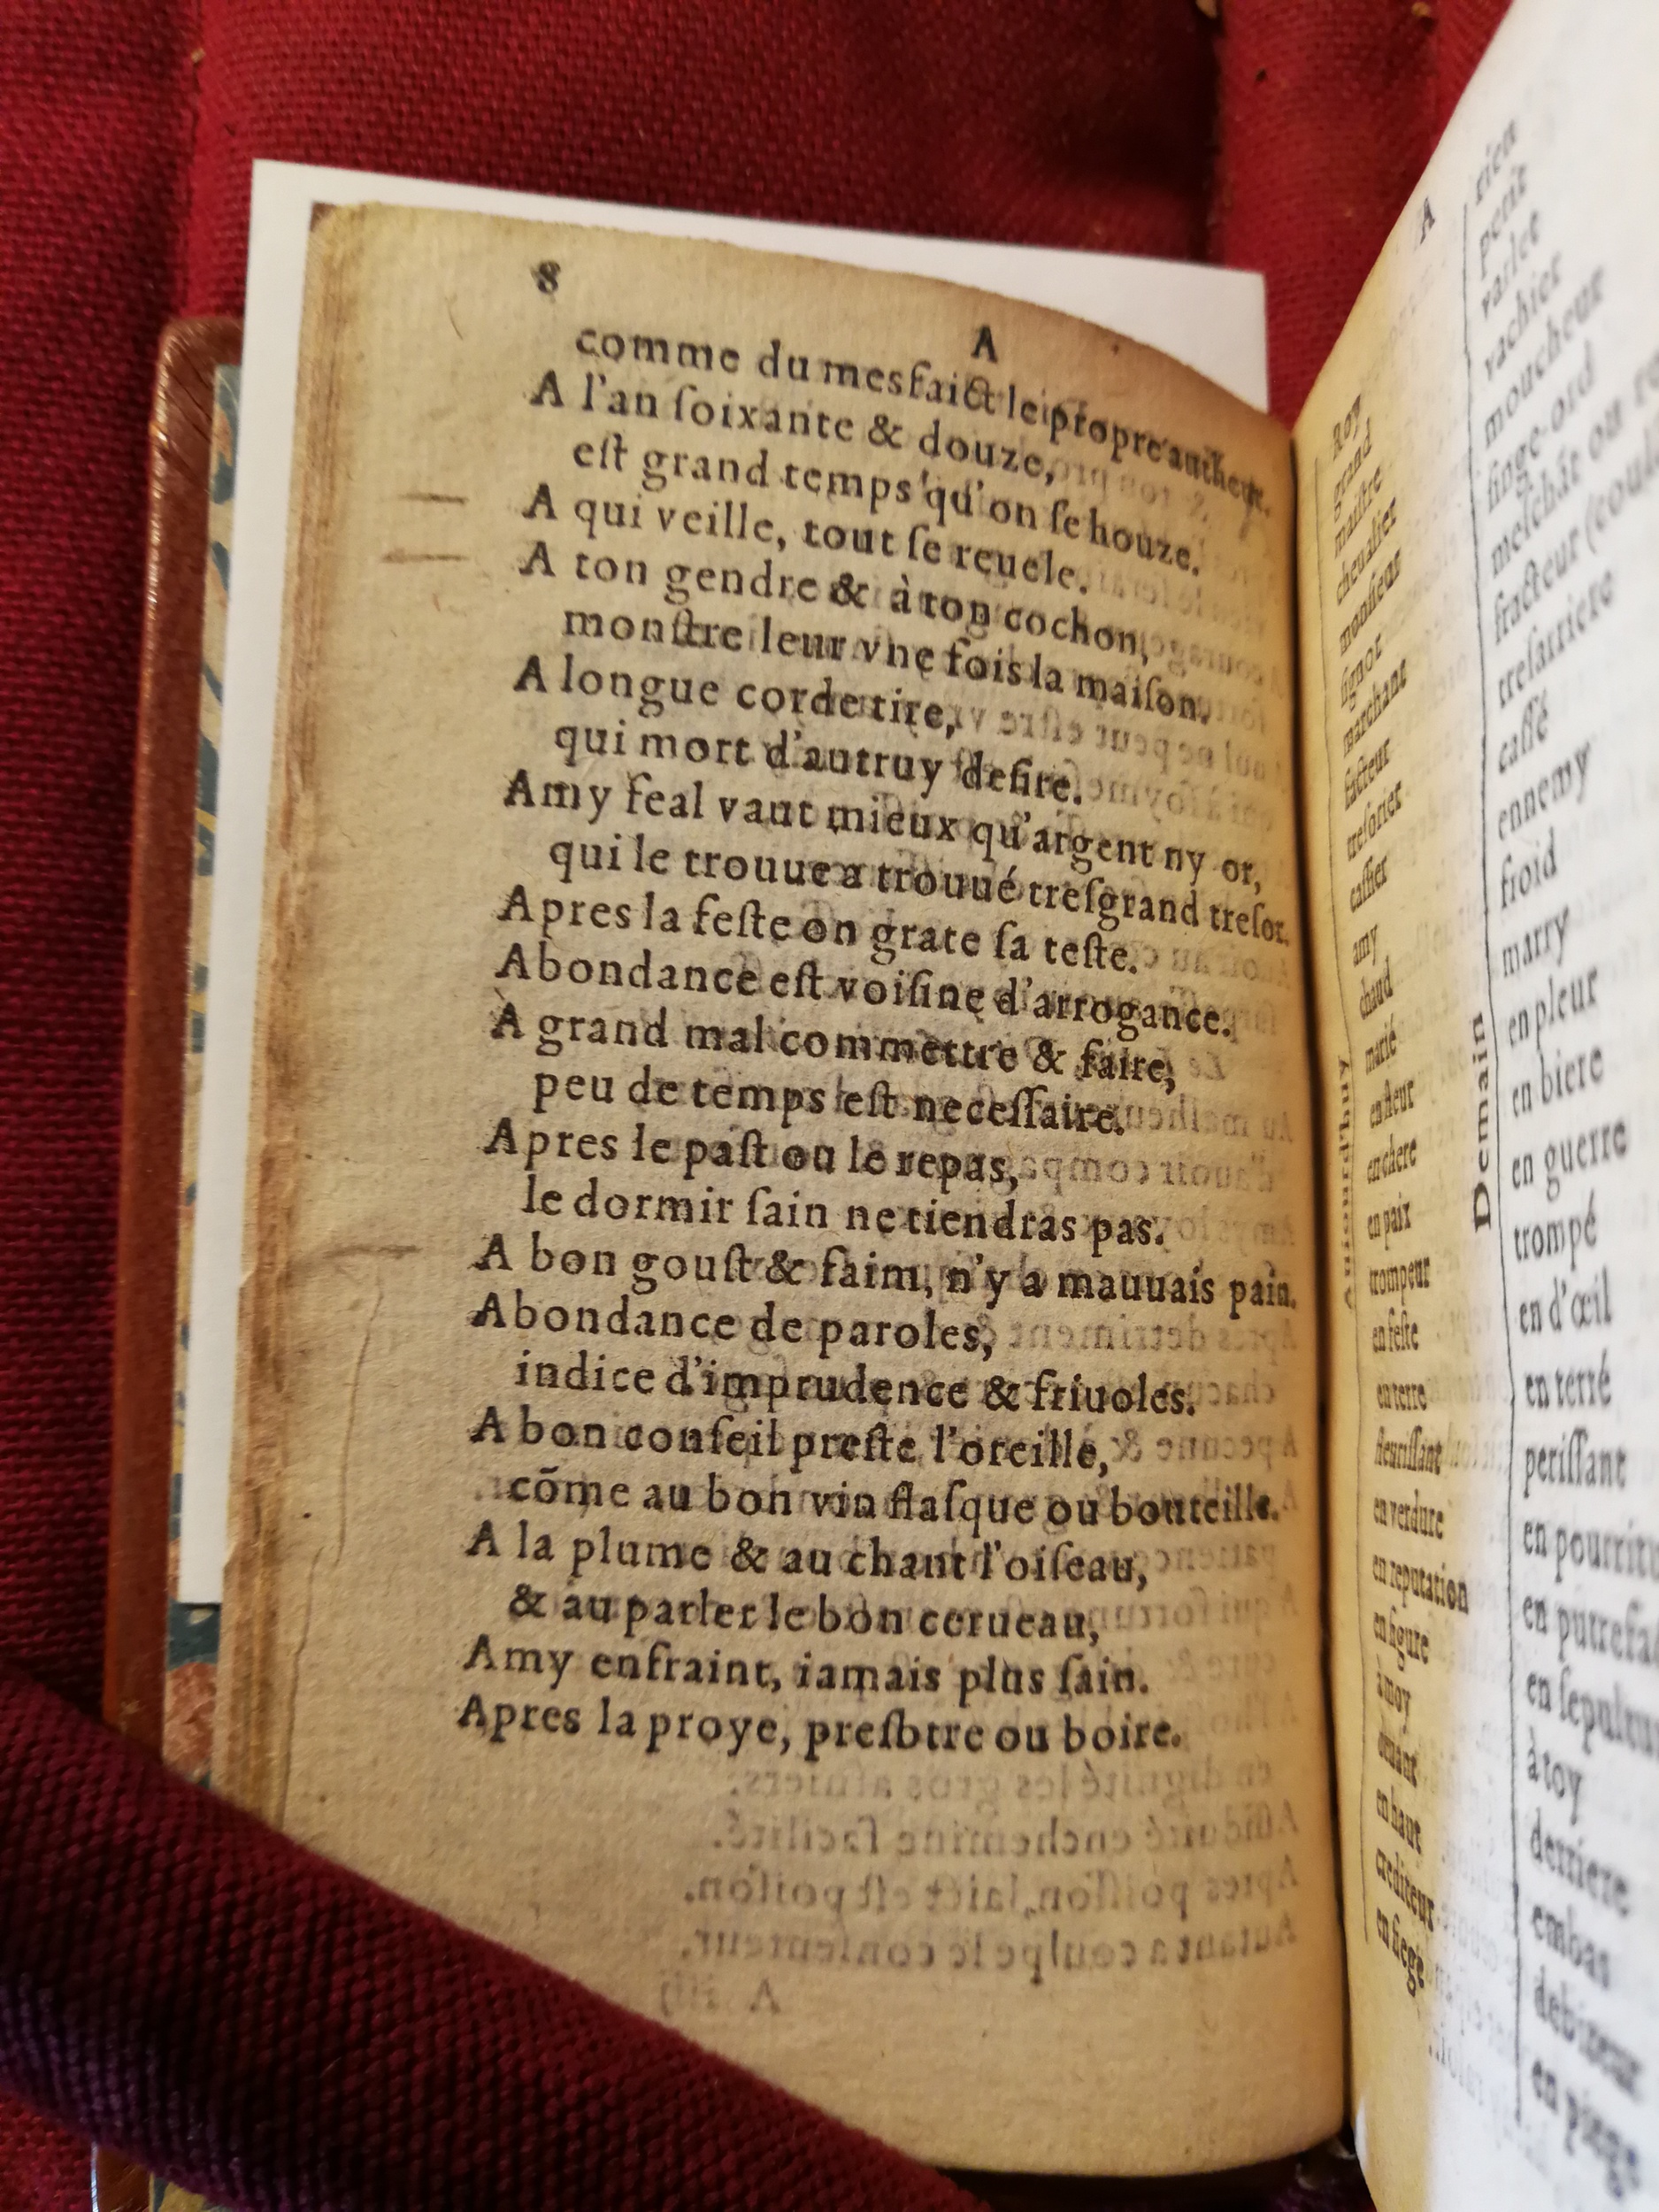 8
A
comme du mesfaict le propre autheur.
A l'an ſoixante & douze,
eſt grand temps qu'on ſe houze.
A qui veille, tout ſe reuele.
A ton gendre & à ton cochon,
monſtre leur vne fois la maiſon.
A longue corde tire,
qui mort d'autruy deſire.
Amy feal vaut mieux qu'argent ny or,
qui le trouue a trouué treſgrand treſor.
Apres la feſte on grate ſa teſte.
Abondance eſt voiſine d'arrogance.
A grand mal commettre & faire,
peu de temps eſt neceſſaire.
Apres le paſt ou le repas,
le dormir ſain ne tiendras pas.
A bon gouſt & faim, n'y a mauuais pain.
Abondance de paroles,
indice d'imprudence & friuoles.
A bon conſeil preſte l'oreille,
cōme au bon vin flaſque ou bouteille.
A la plume & au chant l'oiſeau,
& au parler le bon cerueau,
Amy enfraint, iamais plus ſain.
Apres la proye, preſbtre ou boire.
A
Aujourd'huy
Roy
grand
maiſtre
cheualier
monſieur
ſignor
marchant
facteur
treſorier
caſſier
amy
chaud
marié
en fleur
en chere
en paix
trompeur
en feſte
en terre
fleuriſſant
en verdure
en reputation
en figure
à moy
deuant
en haut
crediteur
en ſiege
Demain
rien
petit
varlet
vachier
moucheur
ſinge-ord
meſchāt ou
fracteur
treſarriere
caſſé
ennemy
froid
marry
en pleur
en biere
en guerre
trompé
en d'œil
en terré
periſſant
en
en
en
à toy
derriere
embas
debiteur
en piege